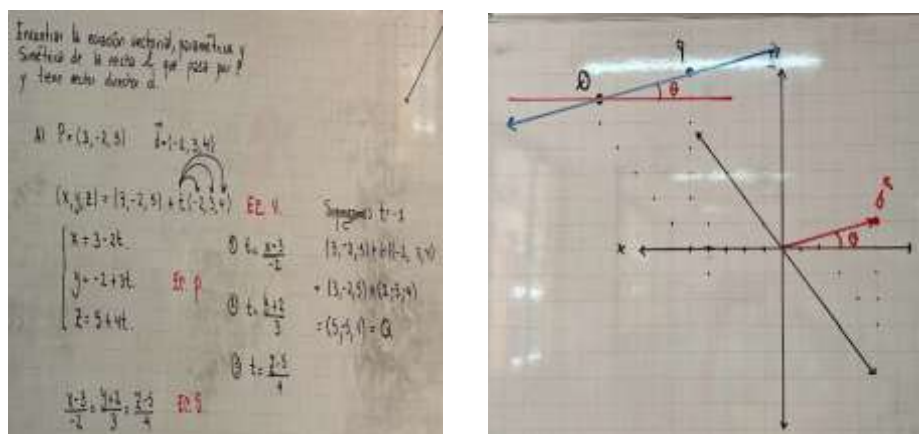 Encontrar la ecuación vectorial, paramétrica y
Simétrica de la recta L que pasa por P
y tiene vector director d.
A) P=(3,-2,5) d=(-2,3,4)
(x,y,z)=(3,-2,5)+t(-2,3,4) Ec. V.
x=3-2t.
y=-2+3t.
z=5+4t.
Ec. p
① t=x-3/-2
② t=y+2/3
③ t=z-5/4
x-3/-2=y+2/3=z-5/4 Ec. S
Supongamos t=-1
(3,-2,5)+(-1)(-2,3,4)
=(3,-2,5)+(2,-3,-4)
=(5,-5,1)=Q
q
θ
x
θ